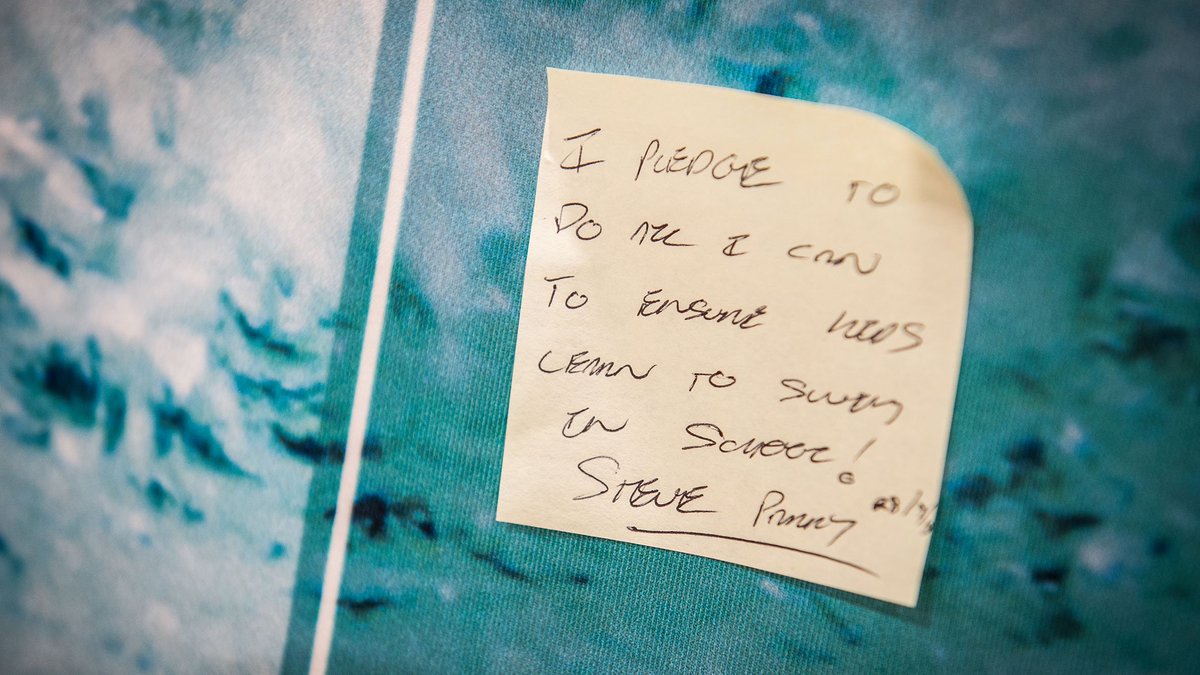 I PLEDGE TO
DO ALL I CAN
TO ENSURE KIDS
LEARN TO SWIM
IN SCHOOL!
STEVE PARRY